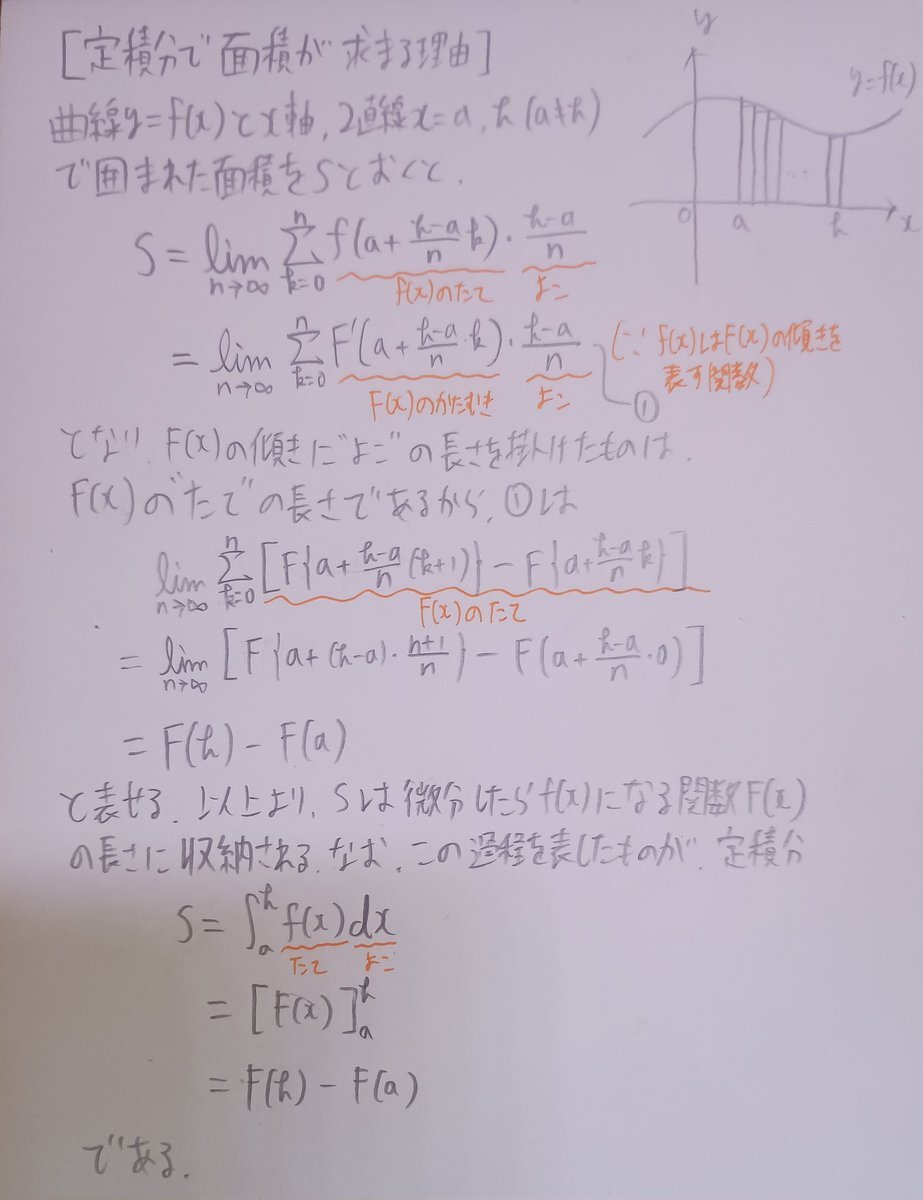 [定積分で面積が求まる理由]
曲線y=f(x)とx軸, 2直線x=a, h (a≠h)
で囲まれた面積をSとおくと,
y
y=f(x)
0 a … h x
S = lim_{n→∞} Σ_{k=0}^{n} f(a + (h-a)/n k) · (h-a)/n
f(x)のたて よこ
= lim_{n→∞} Σ_{k=0}^{n} F'(a + (h-a)/n · k) · (h-a)/n
F(x)のかたむき よこ
①
(∵ f(x)はF(x)の傾きを
表す関数)
となり, F(x)の傾きに"よこ"の長さを掛けたものは,
F(x)の"たて"の長さであるから, ①は
lim_{n→∞} Σ_{k=0}^{n} [F{a + (h-a)/n (k+1)} - F{a + (h-a)/n k}]
F(x)のたて
= lim_{n→∞} [F{a + (h-a) · (n+1)/n} - F(a + (h-a)/n · 0)]
= F(h) - F(a)
と表せる. 以上より, Sは微分したらf(x)になる関数F(x)
の長さに収納される. なお, この過程を表したものが, 定積分
S = ∫_a^h f(x)dx
たて よこ
= [F(x)]_a^h
= F(h) - F(a)
である.